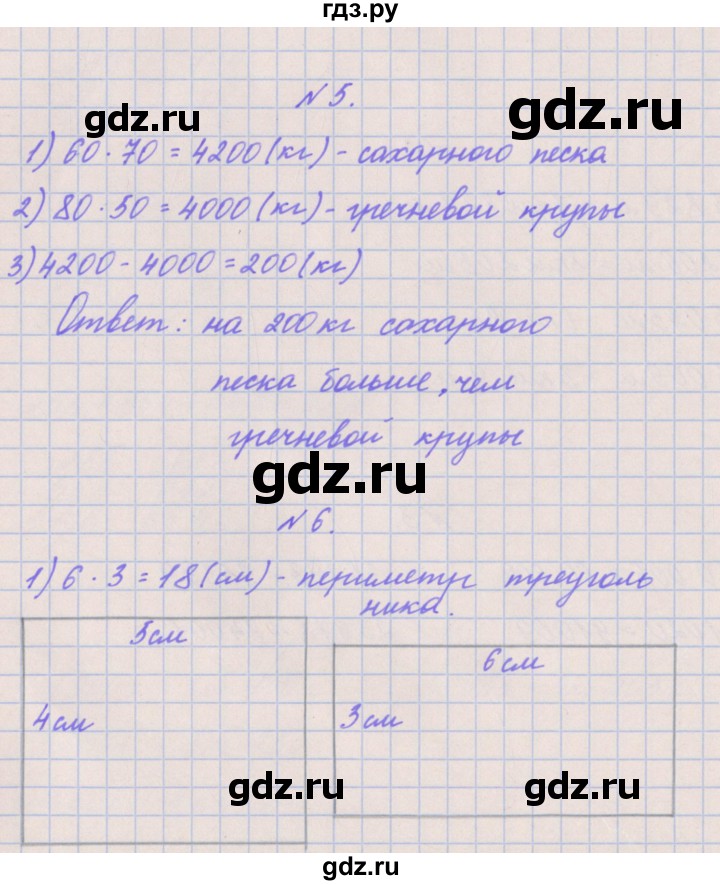 гдз.ру
№5.
gdz.ru
gdz.ru
1) 60 · 70 = 4200 (кг) - сахарного песка
2) 80 · 50 = 4000 (кг) - гречневой крупы
3) 4200 - 4000 = 200 (кг)
Ответ: на 200 кг сахарного
песка больше, чем
гречневой крупы
gdz.ru
№6.
1) 6 · 3 = 18 (см) - периметр треуголь
ника.
5 см
6 см
4 см
3 см
gdz.ru
gdz.ru
gdz.ru